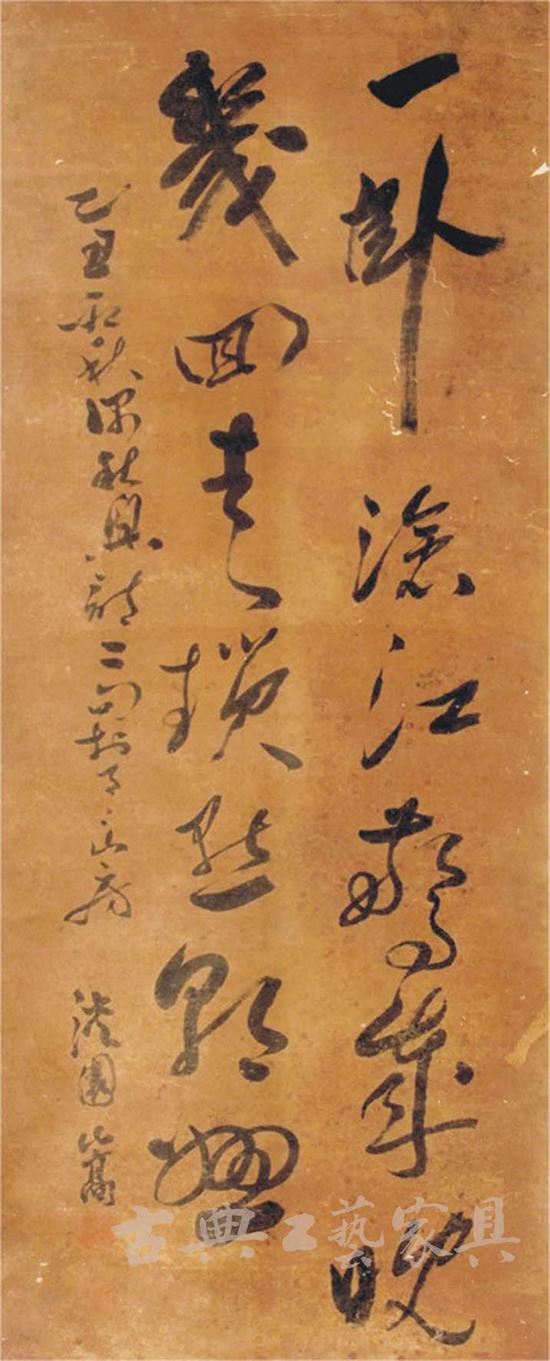 一卧滄江驚歲晚
幾回青瑣點朝班
乙丑 秋 秋興詩二句於 山房 園
古典工藝家具